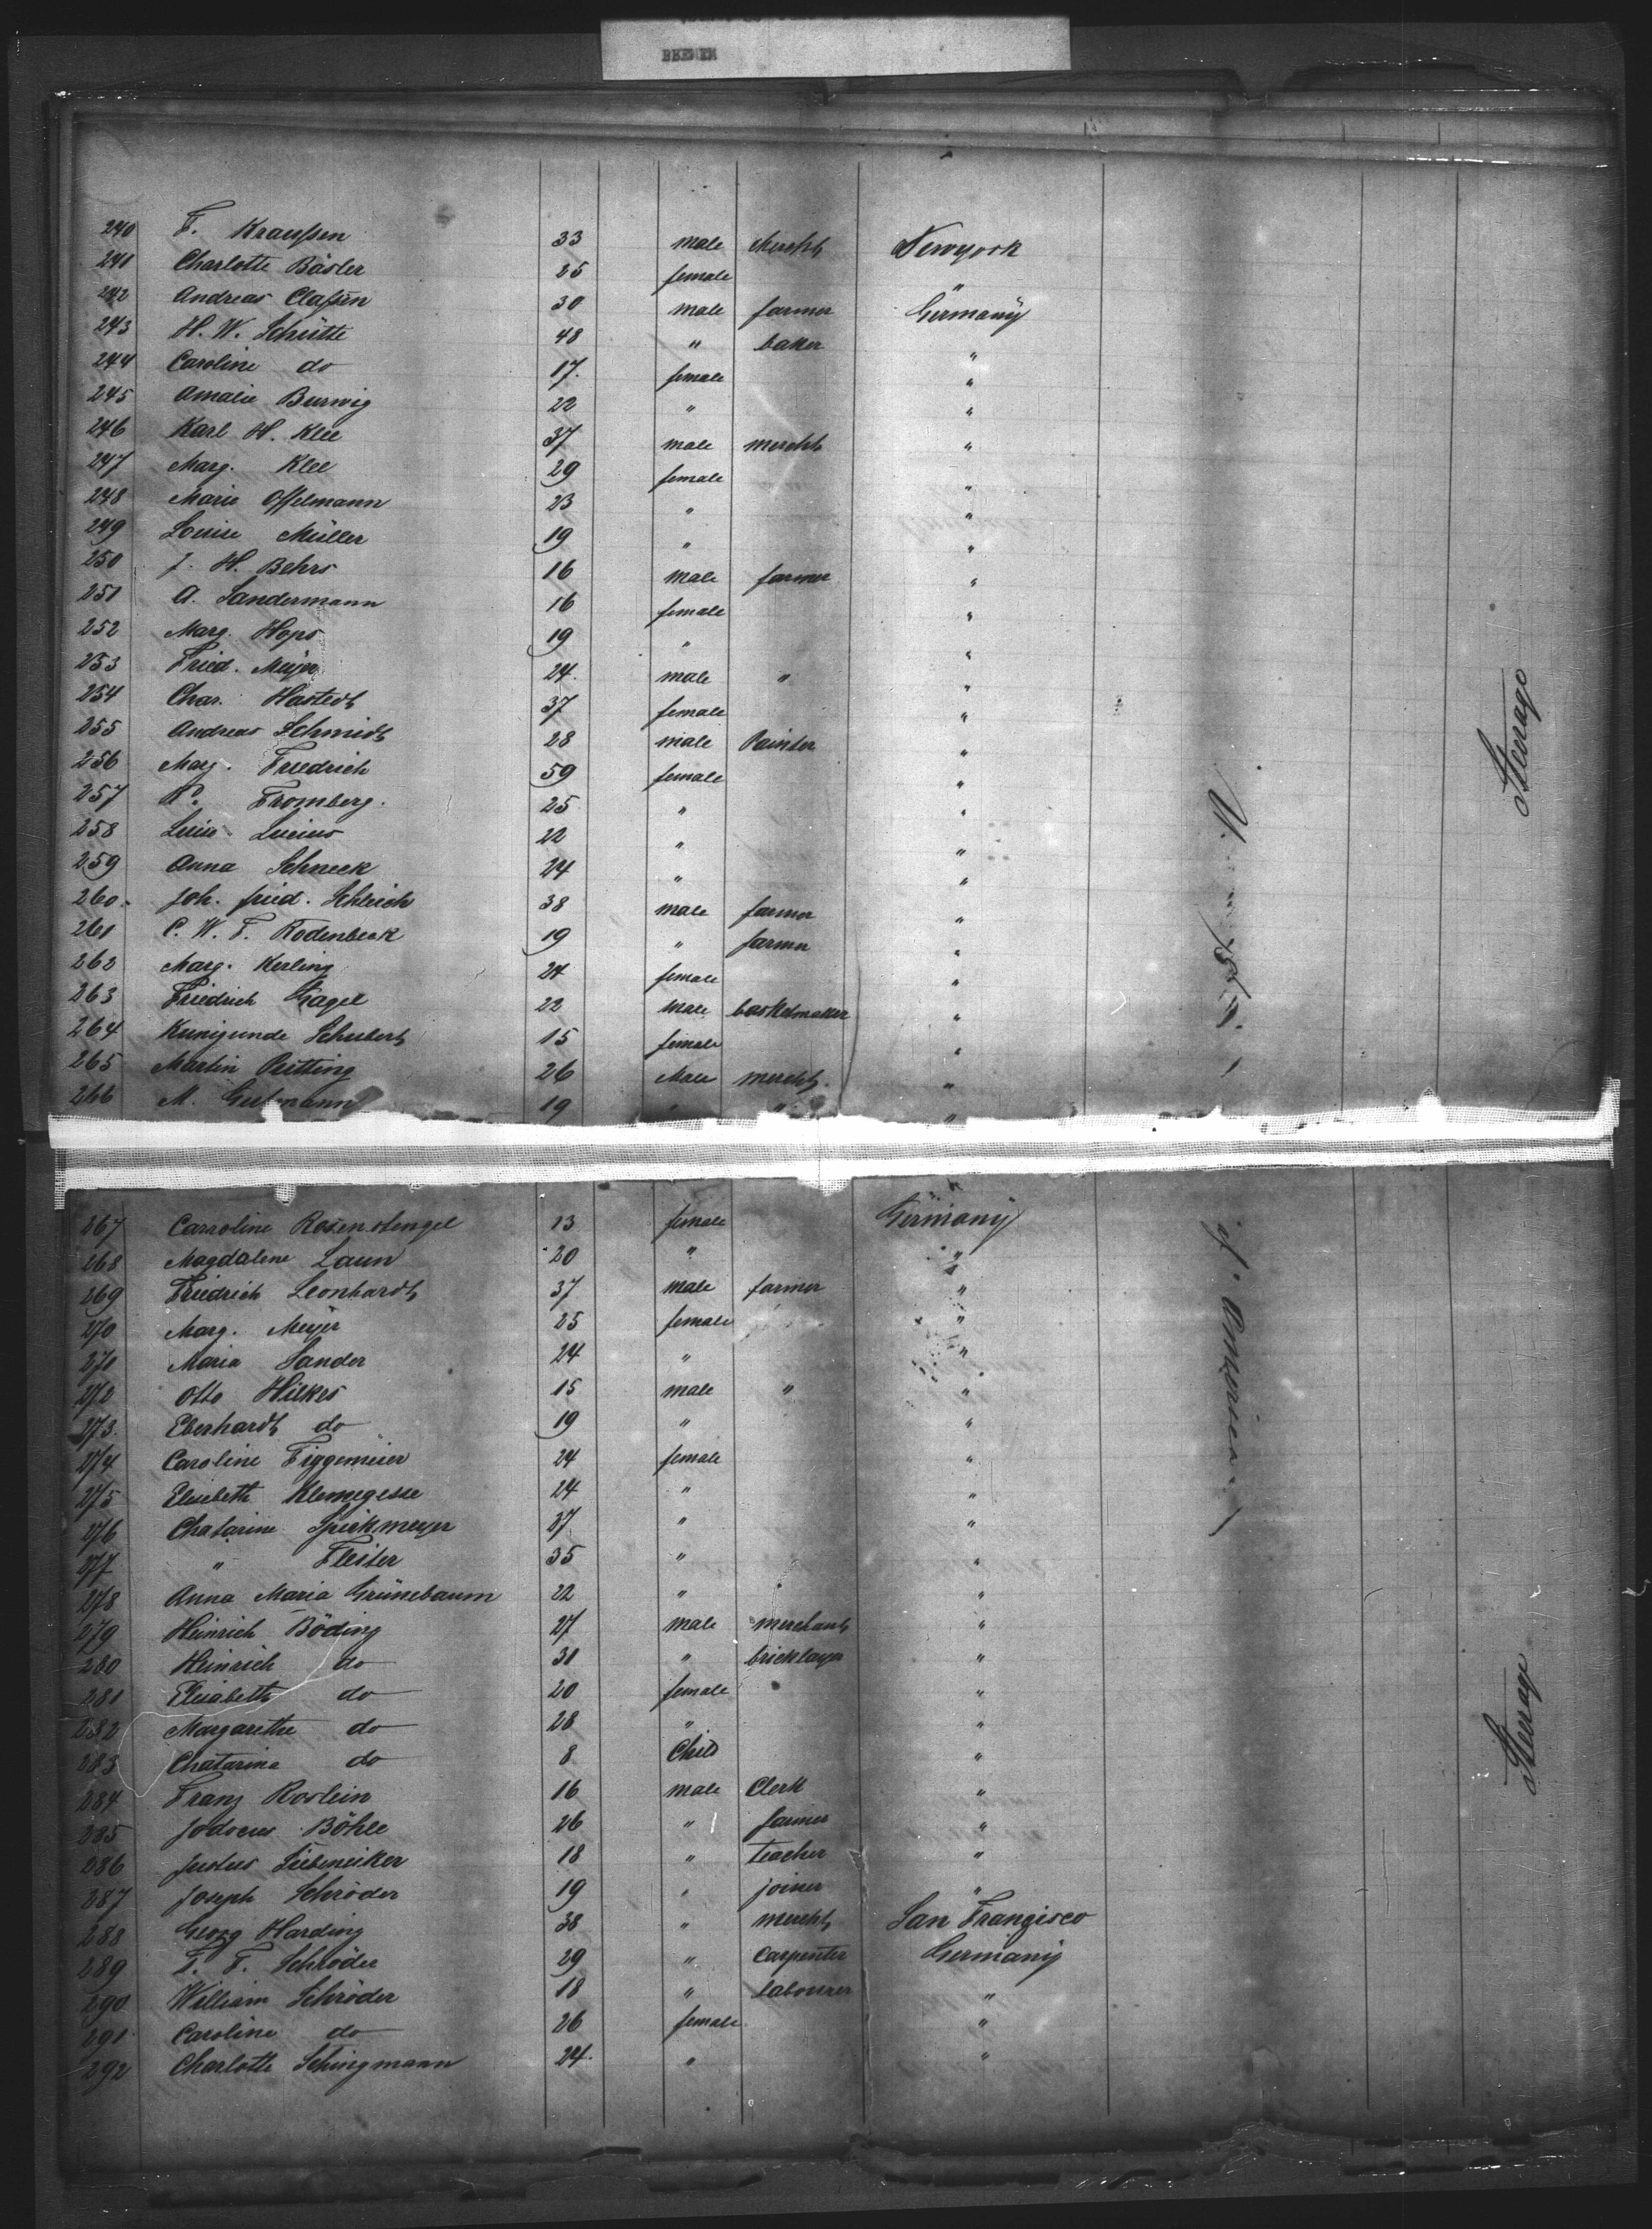 BREMEN
240 F. Kraußen 33 male Mercht Newyork
241 Charlotte Bäsler 25 female "
242 Andreas Claßen 30 male farmer Germany
243 H. W. Schütte 48 " baker "
244 Caroline do 17. female "
245 Amalie Burwig 22 " "
246 Karl H. Klee 37 male mercht "
247 Marg. Klee 29 female "
248 Marie Offelmann 23 " "
249 Louise Müller 19 " "
250 J. H. Behrs 16 male farmer "
251 A. Sandermann 16 female "
252 Marg. Hops 19 " "
253 Fried. Meijer 24. male " "
254 Char. Hastedt 37 female "
255 Andreas Schmidt 28 male Painter "
256 Marg. Friedrich 59 female "
257 Fromberg. 25 " "
258 Lucius 22 " "
259 Anna Schneek 24 " "
260. Joh. fried. Schleich 38 male farmer "
261 C. W. F. Rodenbeck 19 " farmer "
262 Marg. Kerling 24 female "
263 Friedrich Gagel 22 male basketmaker "
264 Kunigunde Schubert 15 female "
265 Martin Peitting 26 Male mercht. "
266 M. Gutmann 19 " " "
Steerage
267 Carroline Rosenstengel 13 female Germany
268 Magdalene Laun 20 " "
269 Friedrich Leonhardt 37 male farmer "
270 Marg. Meijer 25 female "
271 Maria Sander 24 " "
272 Otto Hilkes 15 male " "
273. Eberhardt do 19 " "
274 Caroline Figgemeier 24 female "
275 Elisebeth Klemegesse 24 " "
276 Chatarine Spiekmeyer 27 " "
277 " Fleiter 35 " "
278 Anna Maria Grünebaum 22 " "
279 Heinrich Böding 27 male merchant "
280 Heinrich do 31 " bricklayer "
281 Elisabeth do 20 female "
282 Margarethe do 28 " "
283 Chatarina do 8 Child "
284 Franz Roslein 16 male Clerk "
285 Jodocus Böhle 26 " farmer "
286 Justus Liebeneiker 18 " teacher "
287 Joseph Schröder 19 " joiner "
288 Georg Harding 38 " mercht San Frangisco
289 F. F. Schröder 29 " Carpenter Germany
290 William Schröder 18 " Labourer "
291 Caroline do 26 female "
292 Charlotte Schingmann 24. " "
Steerage